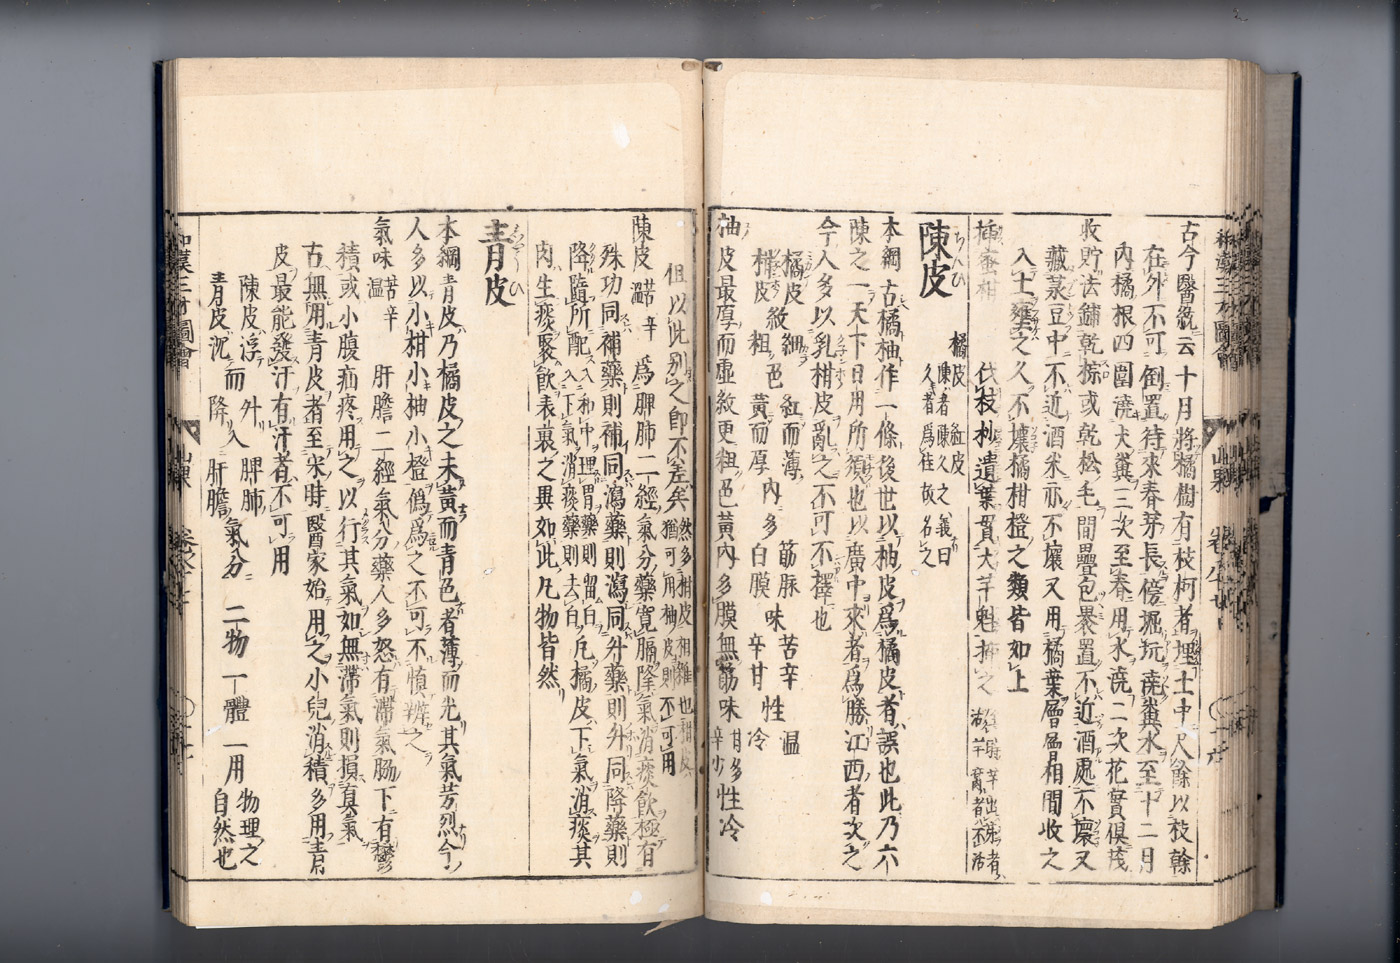 古今醫統云十月將橘樹有枝柯者埋土中尺餘以枝幹
在外不可倒置待來春芽長傍堀坑澆糞水至十二月
内橘根四圍澆犬糞三次至春用水澆二次花實俱茂
收貯法鋪乾松毛間疊包裹置不近酒處不壞又
藏菉豆中不近酒米亦不壞又用橘葉層層相間收之
入土壅之久不壞橘柑橙之類皆如上
挿蜜柑 伐枝杪遺葉貫大芋魁挿之
陳皮 ちんひ
橘皮 紅皮
陳者陳久之義曰
久者爲佳故名之
本綱古橘柚作一條後世以柚皮爲橘皮者誤也此乃六
陳之一天下日用所須也以廣中來者爲勝江西者次之
今人多以乳柑皮亂之不可不擇也
橘皮紋細色紅而薄内多筋脉味苦辛性温
柑皮紋粗色黃而厚内多白膜味辛甘性冷
柚皮最厚而虛紋更粗色黃内多膜無筋味甘多辛少性冷
但以此別之即不差矣
陳皮 苦辛温 爲脾肺二經氣分藥寛膈降氣消痰飲極有
殊功同補藥則補同瀉藥則瀉同升藥則升同降藥則
降隨所配入和中理胃藥則留白入下氣消痰藥則去白凡橘皮下氣消痰其
肉生痰聚飮表裏之異如此凡物皆然
青皮
本綱青皮乃橘皮之未黃而青色者薄而光其氣芳烈今
人多以小柑小柚小橙僞爲之不可不愼辨之
氣味 苦辛温 肝膽二經氣分藥人多怒有滯氣脇下有鬱
積或小腹疝疼用之以行其氣如無滯氣則損眞氣
古無用青皮者至宋時醫家始用之小兒消積多用青
皮最能發汗有汗者不可用
陳皮浮而升入脾肺氣分
青皮沉而降入肝膽氣分
二物一體一用物理之自然也
和漢三才圖會
山果